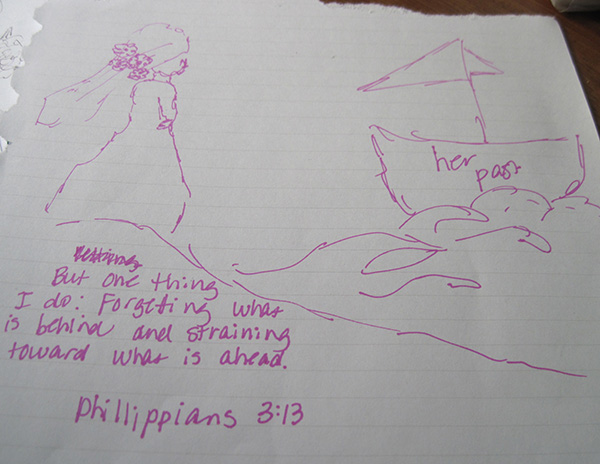 her
past
But one thing
I do: Forgeting what
is behind and straining
toward what is ahead.
Phillippians 3:13